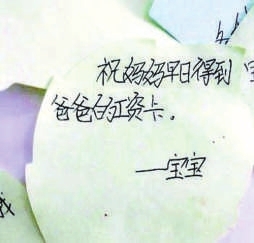 祝妈妈早日得到
爸爸的工资卡。
——宝宝
我